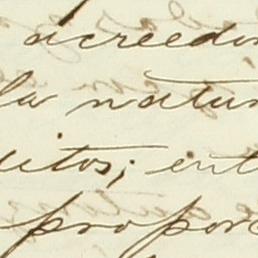 acreedor
la natur
uitos; ent
propor